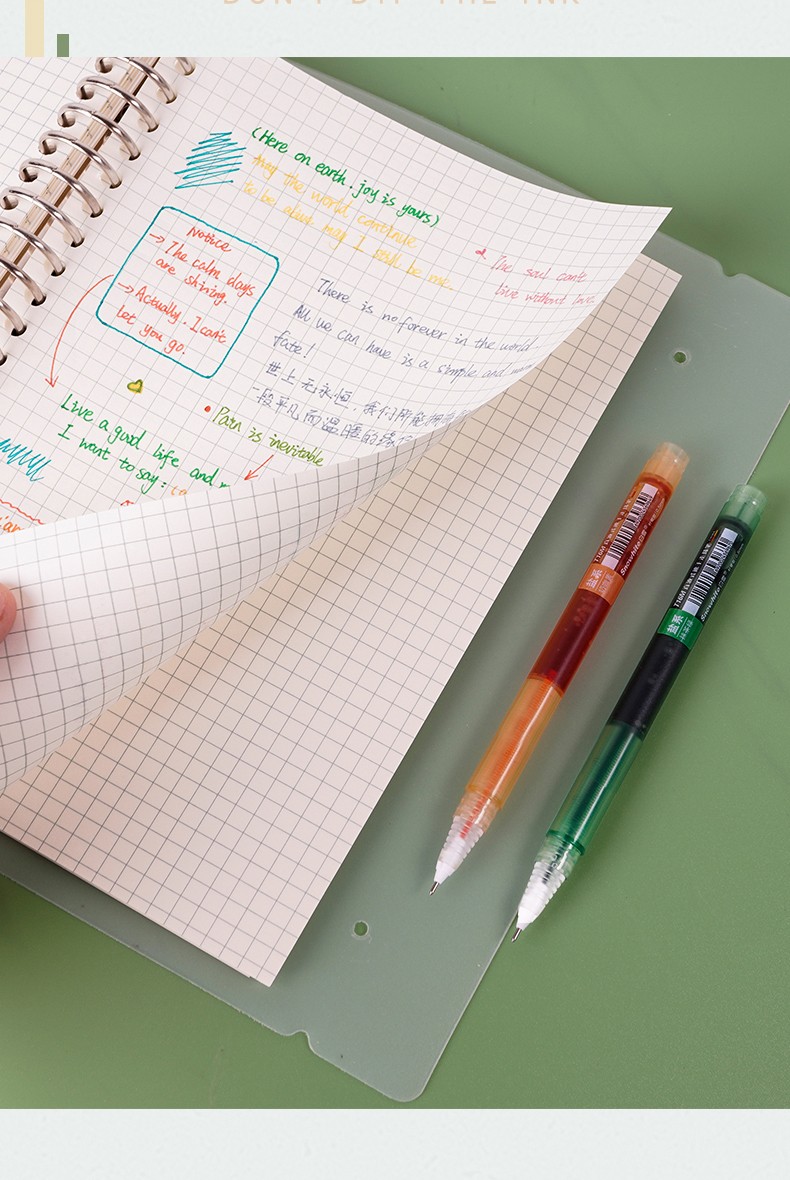 DON'T DIP THE INK
(Here on earth. joy is yours)
may the world continue
to be alive may I still be me.
Notice
→ The calm days
are shining.
→ Actually. I can't
let you go.
The soul can't
live without love.
There is no forever in the world
All we can have is a simple and
fate!
世上无永恒，我们所能拥有的
一段平凡而温暖的缘份
Live a good life and
I want to say:
Pain is inevitable
盐系
Snowhite
盐系
Snowhite